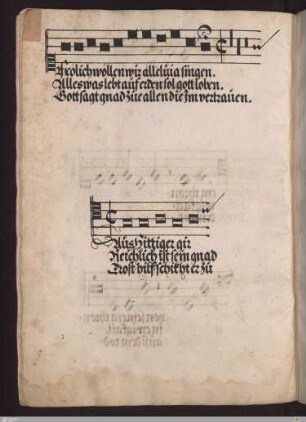 Frolich wollen wir alleluia singen.
Alles was lebt auf erden sol gott loben.
Gott sagt gnad zue allen die Im vertrauen.
Aus hittiger gir
Reichlich ist sein gnad
Trost hilf schikht er zu